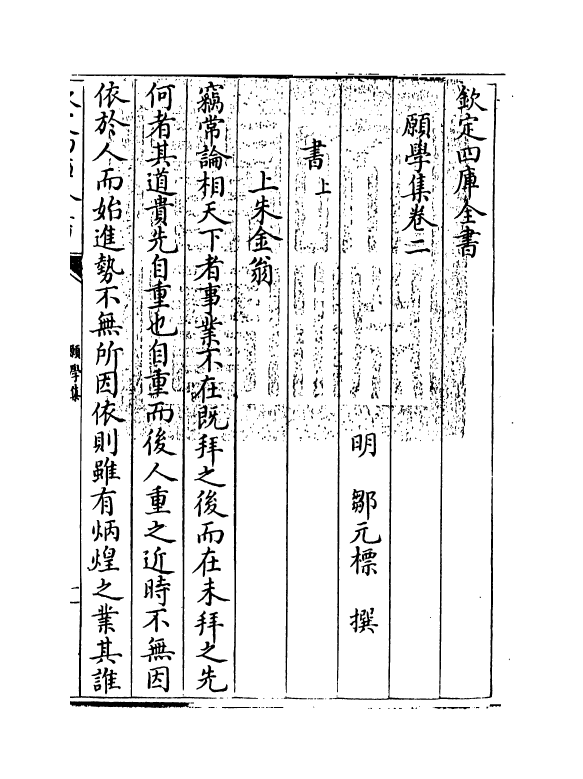 欽定四庫全書
願學集卷二
明　鄒元標　撰
書上
上朱金翁
竊常論相天下者事業不在既拜之後而在未拜之先
何者其道貴先自重也自重而後人重之近時不無因
依於人而始進勢不無所因依則雖有炳煌之業其誰
願學集